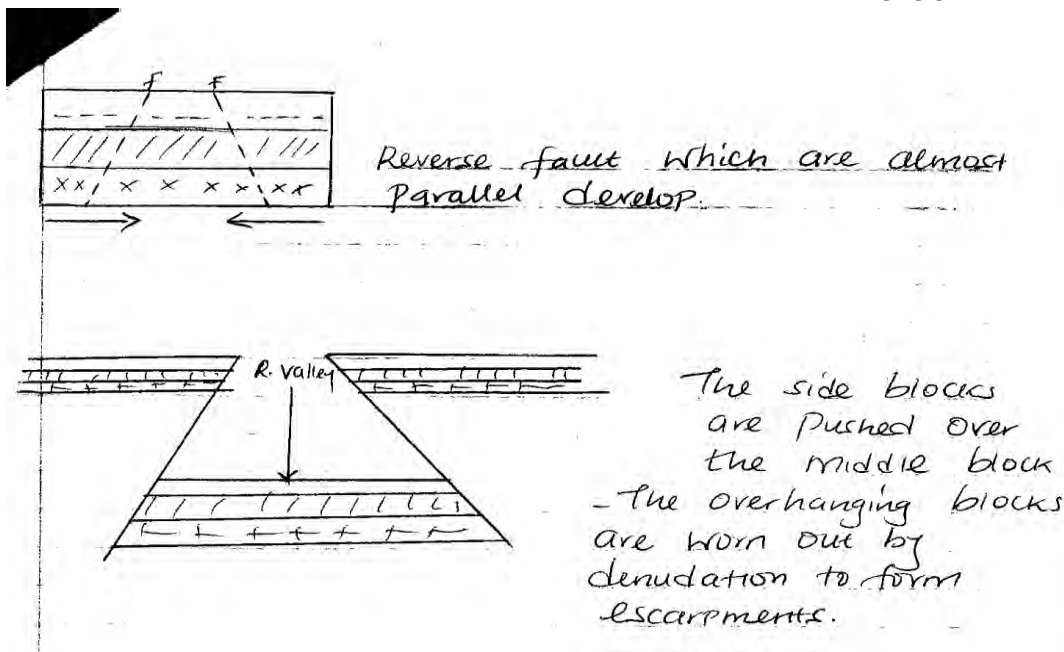 F F
Reverse fault which are almost
parallel develop.
R. Valley
The side blocks
are pushed over
the middle block
- The overhanging blocks
are worn out by
denudation to form
escarpments.